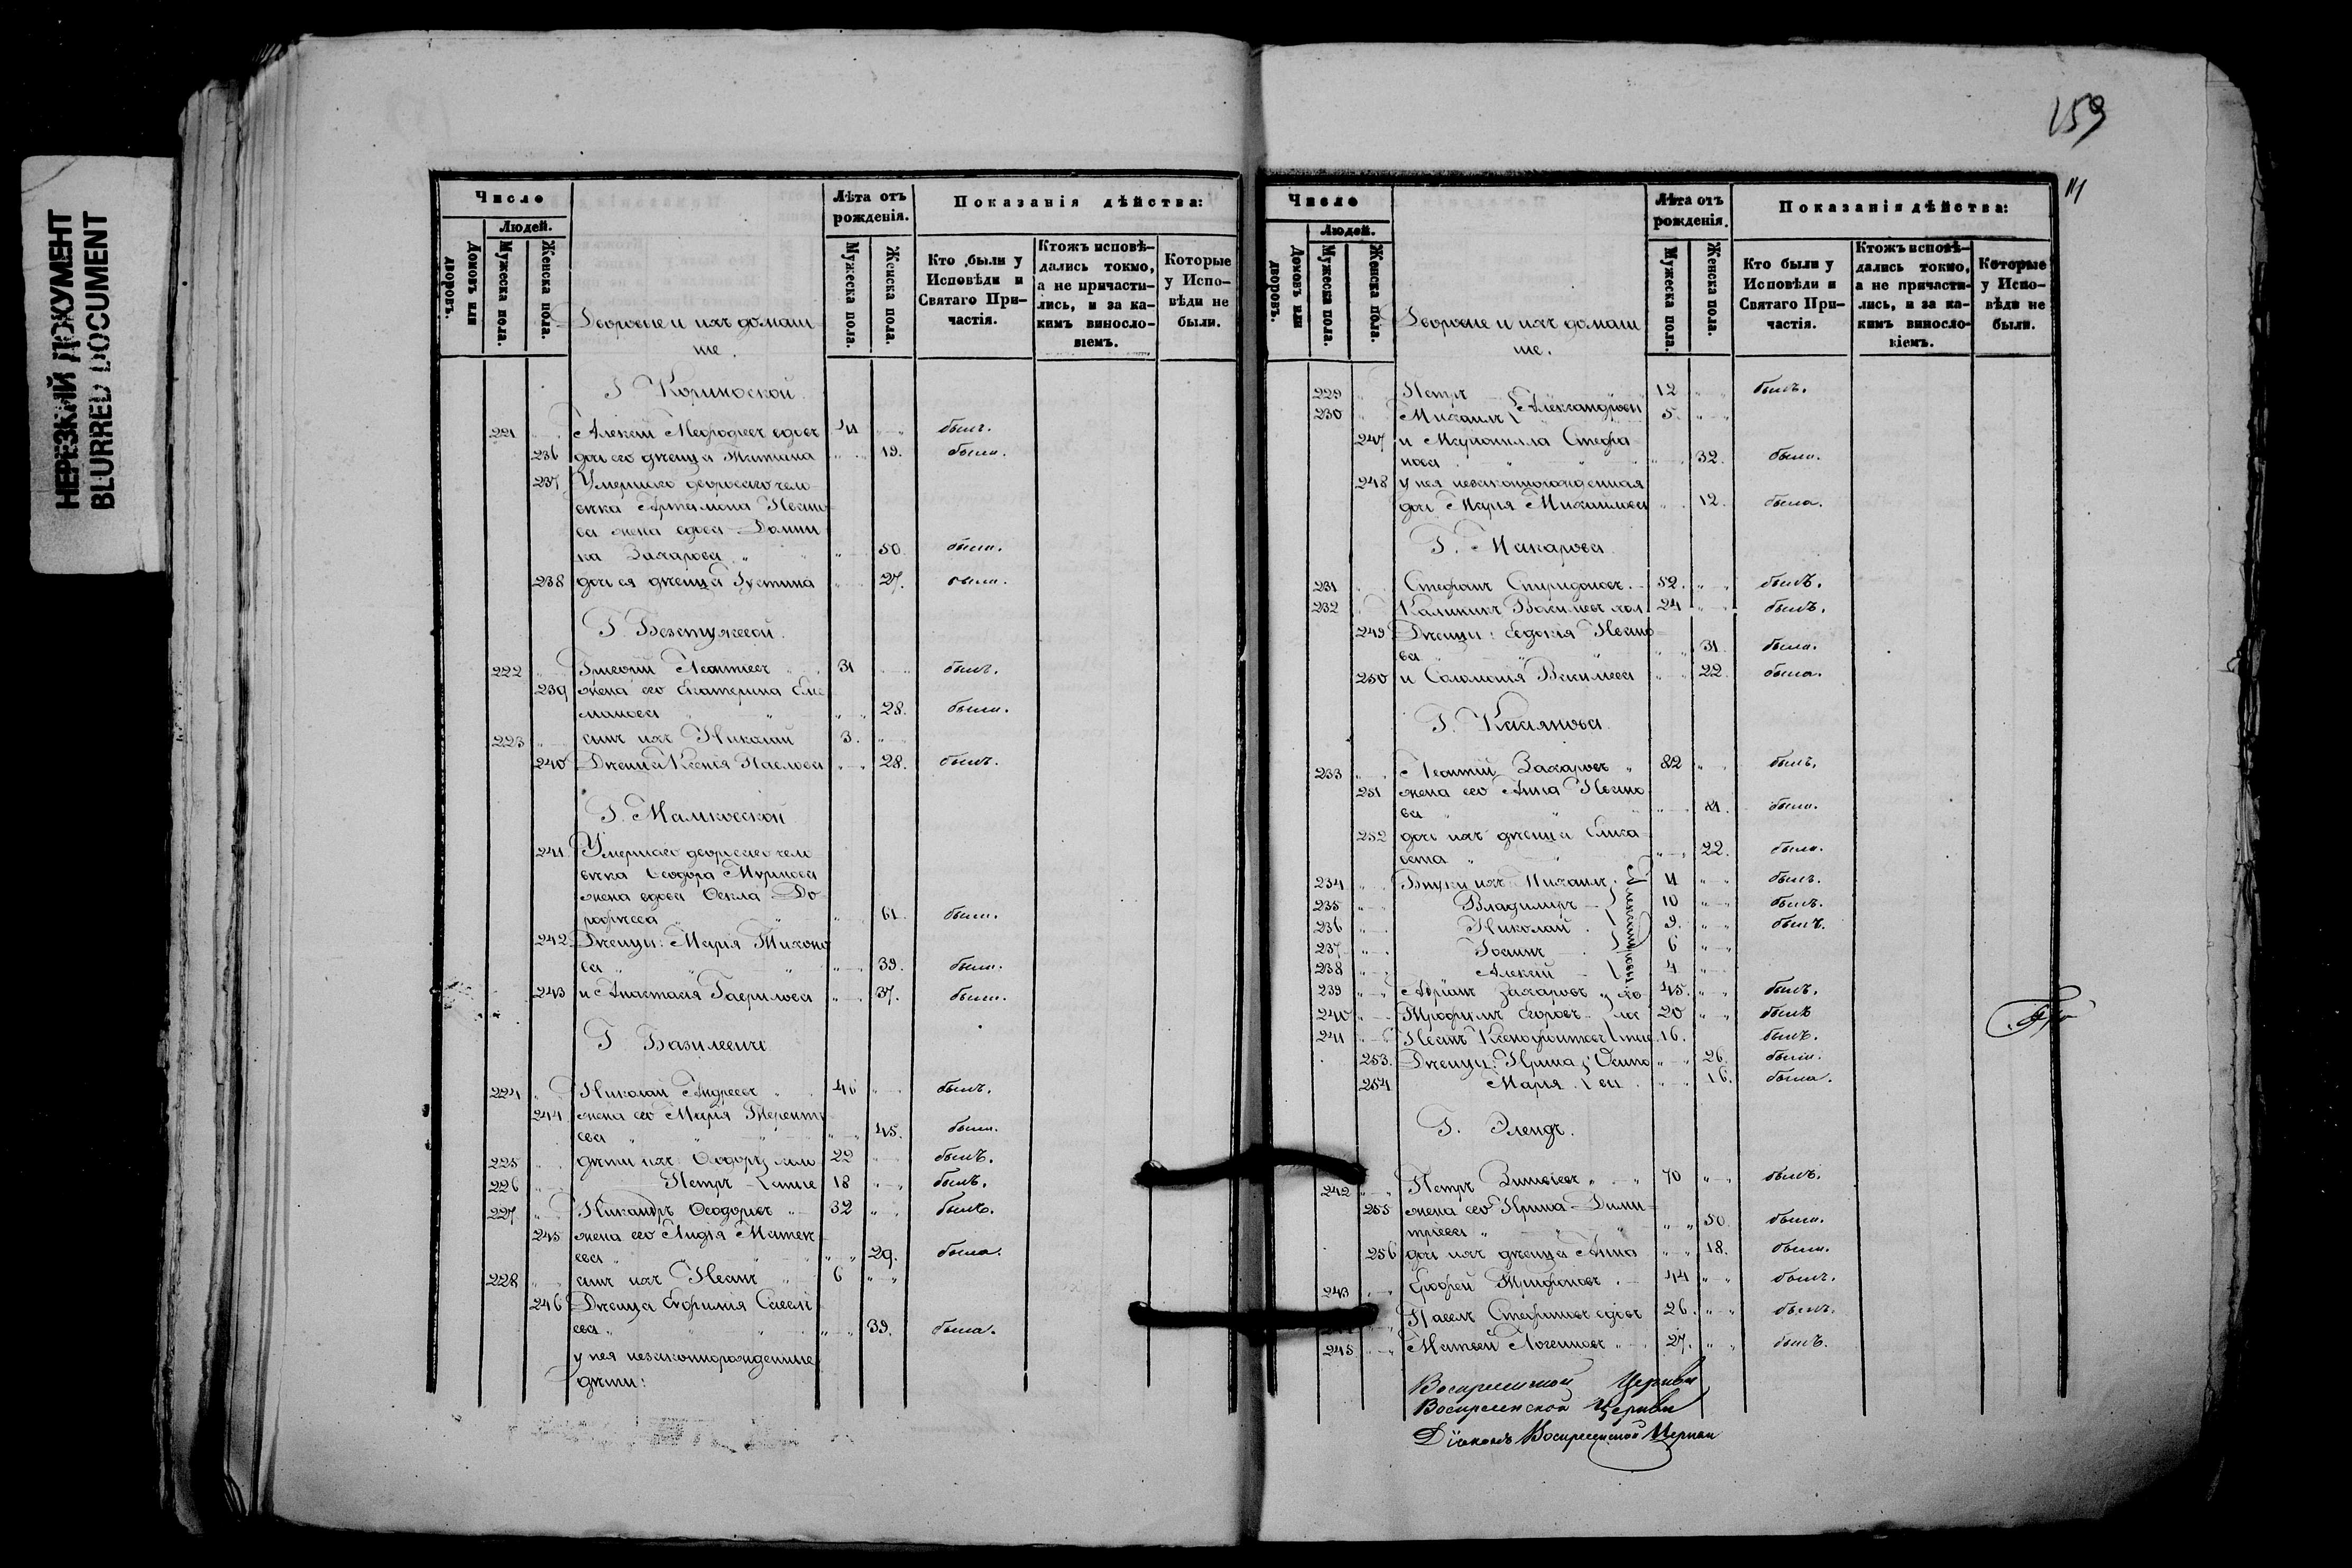 НЕРЕЗКИЙ ДОКУМЕНТ
BLURRED DOCUMENT
Число
Людей.
Домовъ или дворовъ.
Мужеска пола.
Женска пола.
Дворовые и ихъ домаш
ніе.
Лѣта отъ рожденія.
Мужеска пола.
Женска пола.
Показанія дѣйства:
Кто были у Исповѣди и Святаго Причастія.
Ктожъ исповѣ-
дались токмо,
а не причасти-
лись, и за ка-
кимъ винословіемъ.
Которые у Исповѣди не были.
Г.
221 Алексѣй вдовъ 41 былъ.
236 дочь его дѣвица Татіана 19. была.
237 Умершаго двороваго чело
вѣка Артамона Ивано
ва жена вдова Домни
ка Захарова 50. была.
238 дочь ея дѣвица Іустина 27. была.
Г. Безстужевой.
222 Григорій Леонтіевъ 31 былъ.
239 жена его Екатерина
28. была.
223 сынъ ихъ Николай 3.
240 Дѣвица Ксенія Павлова 28. былъ.
Г.
241 Умершаго двороваго чело
вѣка Ѳеодора
жена вдова Ѳекла До
роѳеева 61. была.
242 Дѣвицы: Марія Тихоно
ва 39. была.
243 и Анастасія Гаврилова 37. была.
Г. Базилевичъ
224 Николай Андреевъ 46 былъ.
244 жена его Марія Теренть
ева 45. была.
225 дѣти ихъ: Ѳеодоръ холо 22 былъ.
226 Петръ стые 18 былъ.
227 Никандръ Ѳеодоровъ 32 былъ.
245 жена его Лидія Матвѣ
ева 29. была.
228 сынъ ихъ Иванъ 6
246 Дѣвица Евфимія Савелі
ева 39. была.
у нея незаконнорожденные
дѣти:
159
Число
Людей.
Домовъ или дворовъ.
Мужеска пола.
Женска пола.
Дворовые и ихъ домаш
ніе.
Лѣта отъ рожденія.
Мужеска пола.
Женска пола.
Показанія дѣйства:
Кто были у Исповѣди и Святаго Причастія.
Ктожъ исповѣ-
дались токмо,
а не причасти-
лись, и за ка-
кимъ винословіемъ.
Которые у Исповѣди не были.
229 Петръ Александровы 12 былъ.
230 Михаилъ 5.
247 и Стефа
нова 32. была.
248 у нея незаконнорожденная
дочь Марія Михайлова 12. была.
Г. Макарова
231 Стефанъ Спиридоновъ 52. былъ.
232 хол. 24 былъ.
249 Дѣвицы: Евдокія Ивано
ва 31. была.
250 и Соломонія 22. была.
Г. Касьянова
233 Леонтій Захаровъ 82 былъ.
251 жена его Анна Ивано
ва 81. была.
252 дочь ихъ дѣвица Елиса
вета 22. была.
234 Внуки ихъ: Михаилъ 11 былъ.
235 Владиміръ 10 былъ.
236 Николай 9. былъ.
237 Іоаннъ 6
238 Алексѣй 4
Александровы
239 Адріанъ Захаровъ хо 45. былъ.
240 Трофимъ Егоровъ лос 20 былъ
241 Иванъ Ксенофонтовъ тые 16. былъ.
253. Дѣвицы: Ирина Осипо 26. была.
254 Марія вы 16. была.
Г. Элендъ.
242 Петръ 70 былъ.
255 жена его Ирина Дими
тріева 50. была.
256 дочь ихъ дѣвица Анна 18. была.
243 Ерофей Трифоновъ 44 былъ.
Павелъ Стефановъ вдовъ 26. былъ.
245 Матвей Логиновъ 27. былъ.
Воскресенской Церкви
Воскресенской Церкви
Діаконъ Воскресенской Церкви